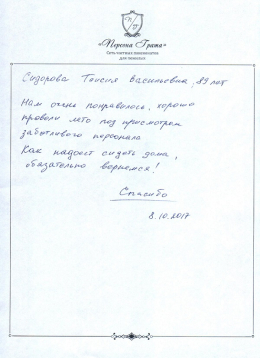 «Персона Грата»
Сеть элитных пансионатов
для пожилых
Сидорова Таисия Васильевна, 89 лет
Нам очень понравилось, хорошо
провели лето под присмотром
заботливого персонала
Как надоест сидеть дома,
обязательно вернемся!
Спасибо
8.10.2017